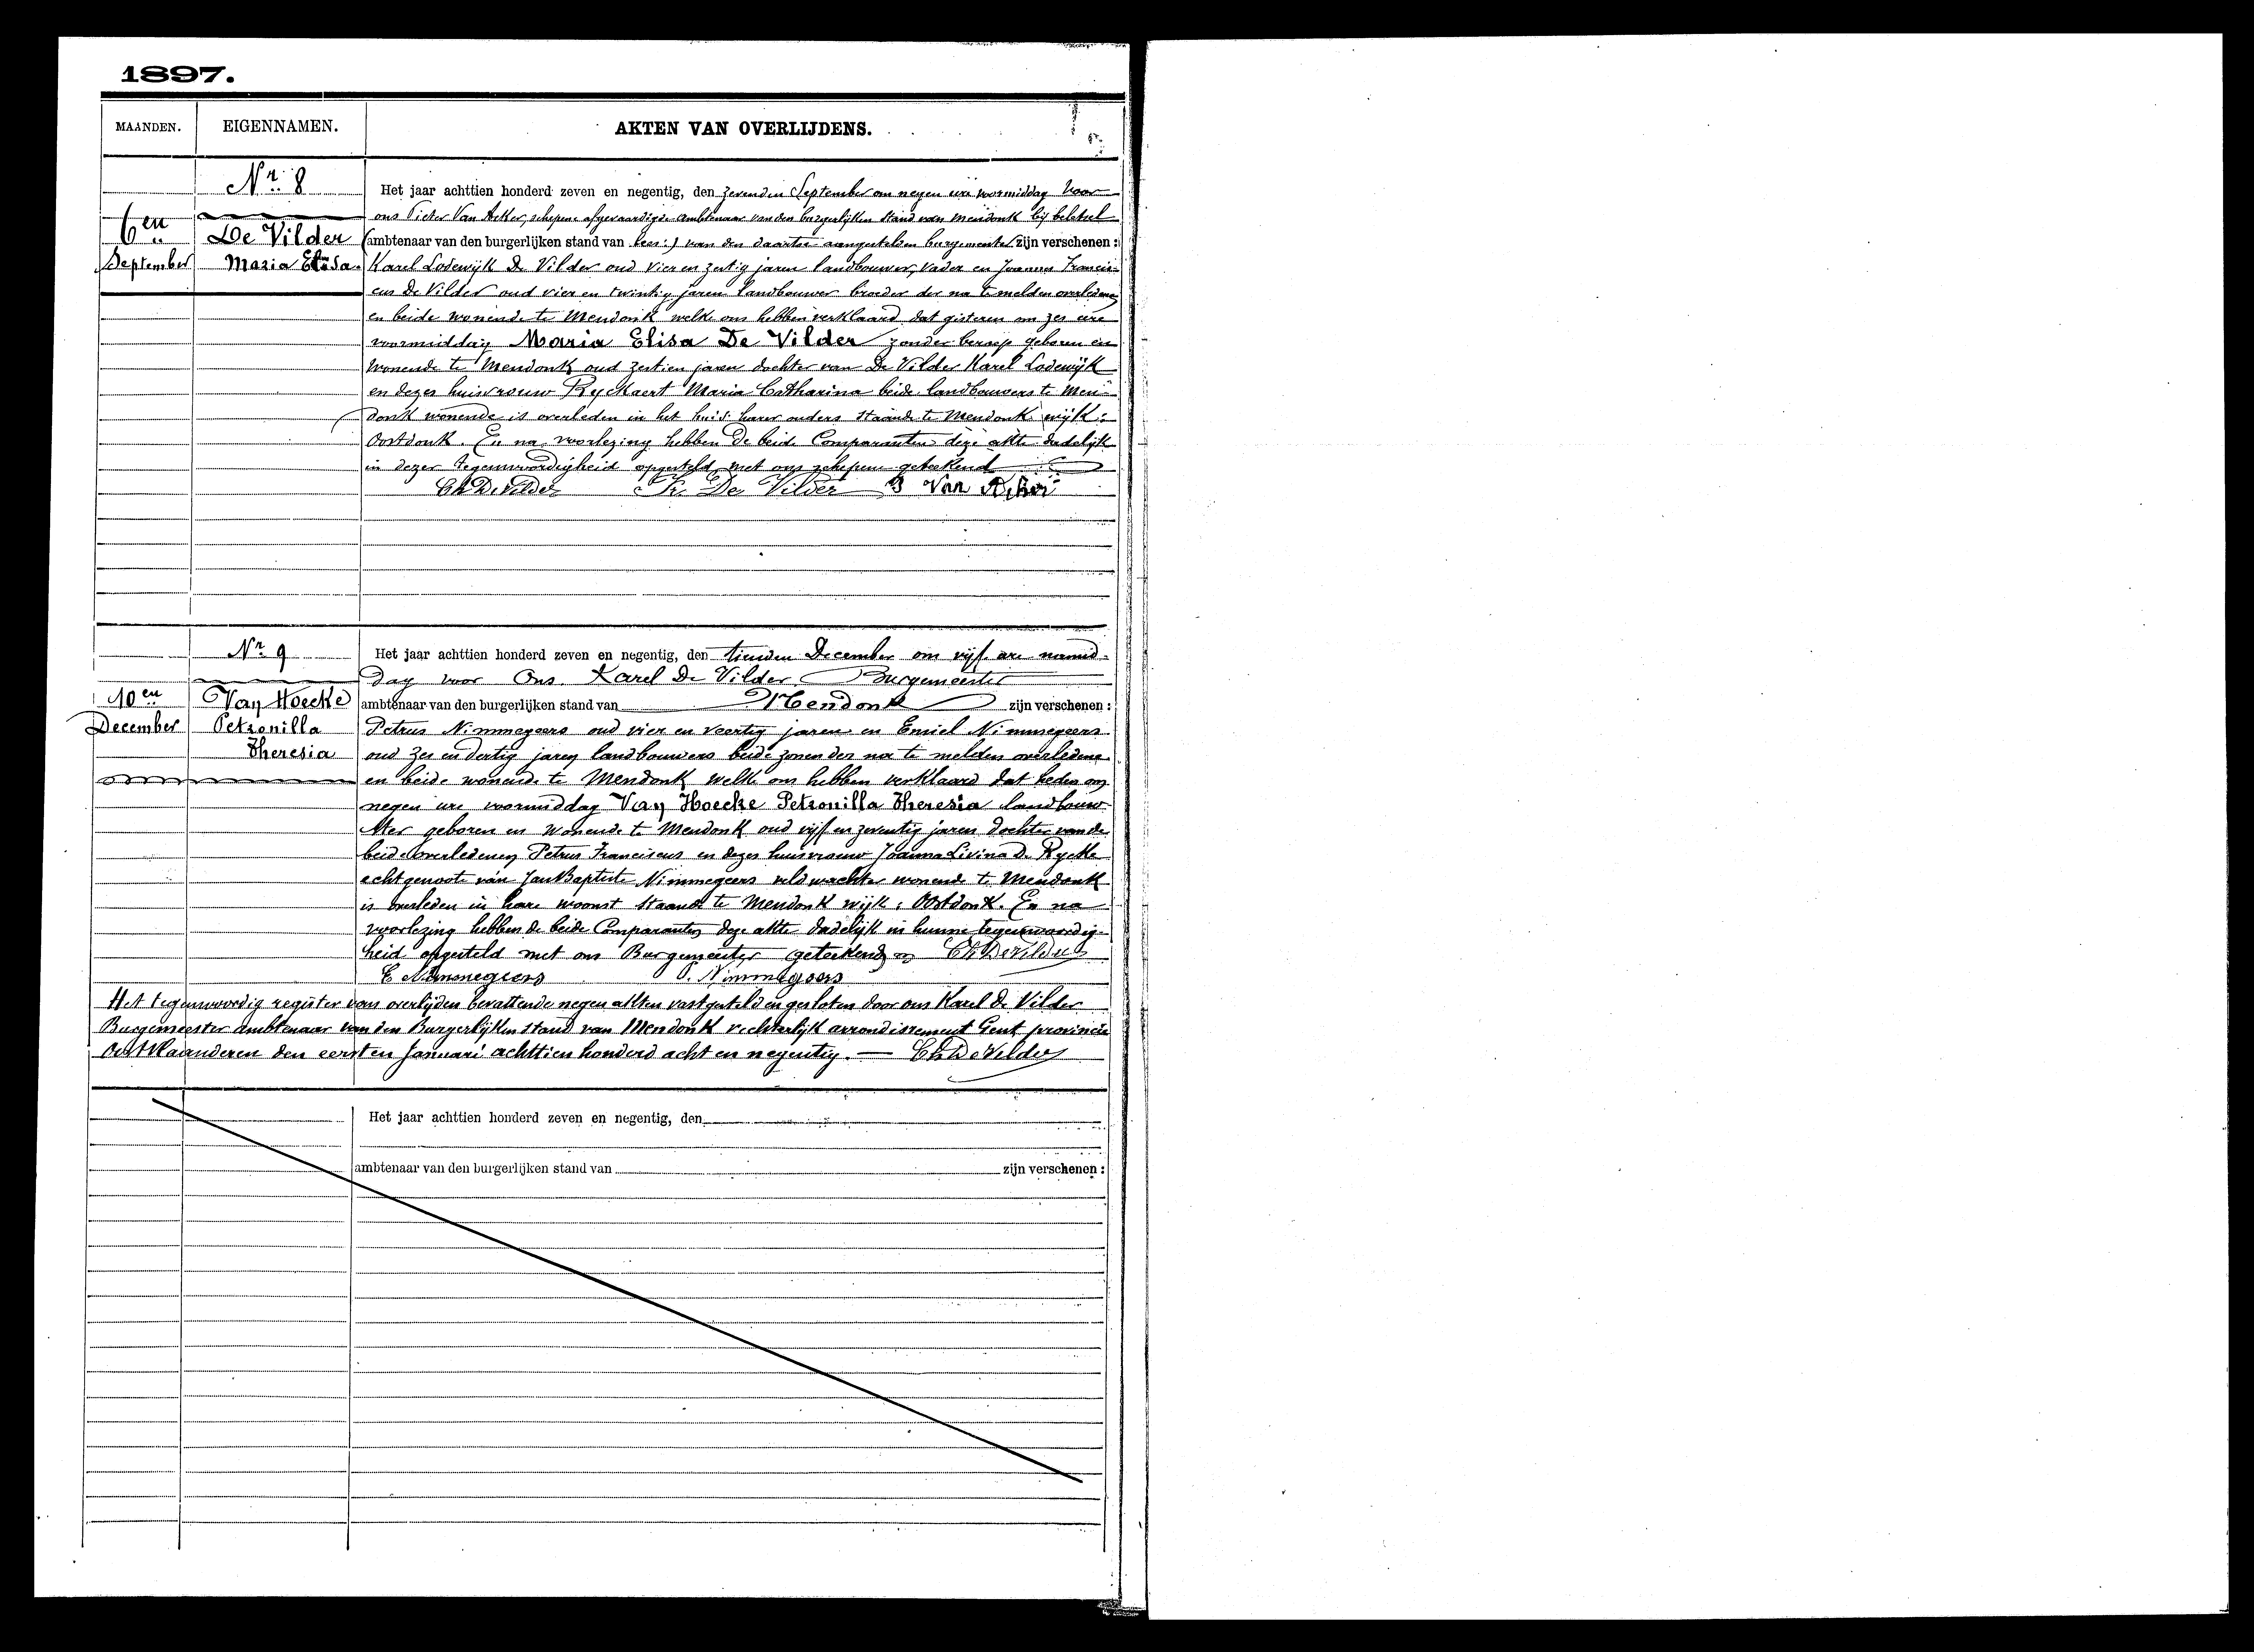 1897.
MAANDEN.
EIGENNAMEN.
AKTEN VAN OVERLIJDENS.
Nr. 8
6en
September
De Vilder
Maria Elisa
Het jaar achttien honderd zeven en negentig, den zevenden September om negen ure voormiddag voor
ons Pieter Van Acker, schepene afgevaardigde ambtenaar van den burgerlijken stand van Mendonk bij beletsel
(ambtenaar van den burgerlijken stand van lees:) van den daartoe aangestelden burgemeester zijn verschenen:
Karel Lodewijk De Vilder oud vier en zestig jaren landbouwer, vader en Joannes Francis-
cus De Vilder oud vier en twintig jaren landbouwer broeder der na te melden overledene
en beide wonende te Mendonk welke ons hebben verklaard dat gisteren om zes ure
voormiddag Maria Elisa De Vilder zonder beroep geboren en
wonende te Mendonk oud zestien jaren dochter van De Vilder Karel Lodewijk
en dezes huisvrouw Ryckaert Maria Catharina beide landbouwers te Men-
donk wonende is overleden in het huis harer ouders staande te Mendonk wijk:
Oostdonk. En na voorlezing hebben de beide Comparanten deze akte dadelijk
in dezer tegenwoordigheid opgesteld met ons schepene geteekend
Ch De Vilder Fr. De Vilder P Van Acker
Nr. 9
10en
December
Van Hoecke
Petronilla
Theresia
Het jaar achttien honderd zeven en negentig, den tienden December om vijf ure namid-
dag voor Ons Karel De Vilder Burgemeester
ambtenaar van den burgerlijken stand van Mendonk zijn verschenen:
Petrus Nimmegeers oud vier en veertig jaren en Emiel Nimmegeers
oud zes en dertig jaren landbouwers beide zonen der na te melden overledene
en beide wonende te Mendonk welke ons hebben verklaard dat heden om
negen ure voormiddag Van Hoecke Petronilla Theresia landbouw-
ster geboren en wonende te Mendonk oud vijf en zeventig jaren dochter van de
beide overledenen Petrus Franciscus en dezes huisvrouw Joanna Livina De Rycke
echtgenoote van Jan Baptiste Nimmegeers veldwachter wonende te Mendonk
is overleden in hare woonst staande te Mendonk wijk: Oostdonk. En na
voorlezing hebben de beide Comparanten deze akte dadelijk in hunne tegenwoordig-
heid opgesteld met ons Burgemeester geteekend Ch De Vilder
E Nimmegeers P. Nimmegeers
Het tegenwoordig register van overlijden bevattende negen akten vastgesteld en gesloten door ons Karel De Vilder
Burgemeester ambtenaar van den Burgerlijken stand van Mendonk rechterlijk arrondissement Gent provincie
Oostvlaanderen den eersten Januari achttien honderd acht en negentig. — Ch De Vilder
Het jaar achttien honderd zeven en negentig, den
ambtenaar van den burgerlijken stand van zijn verschenen: